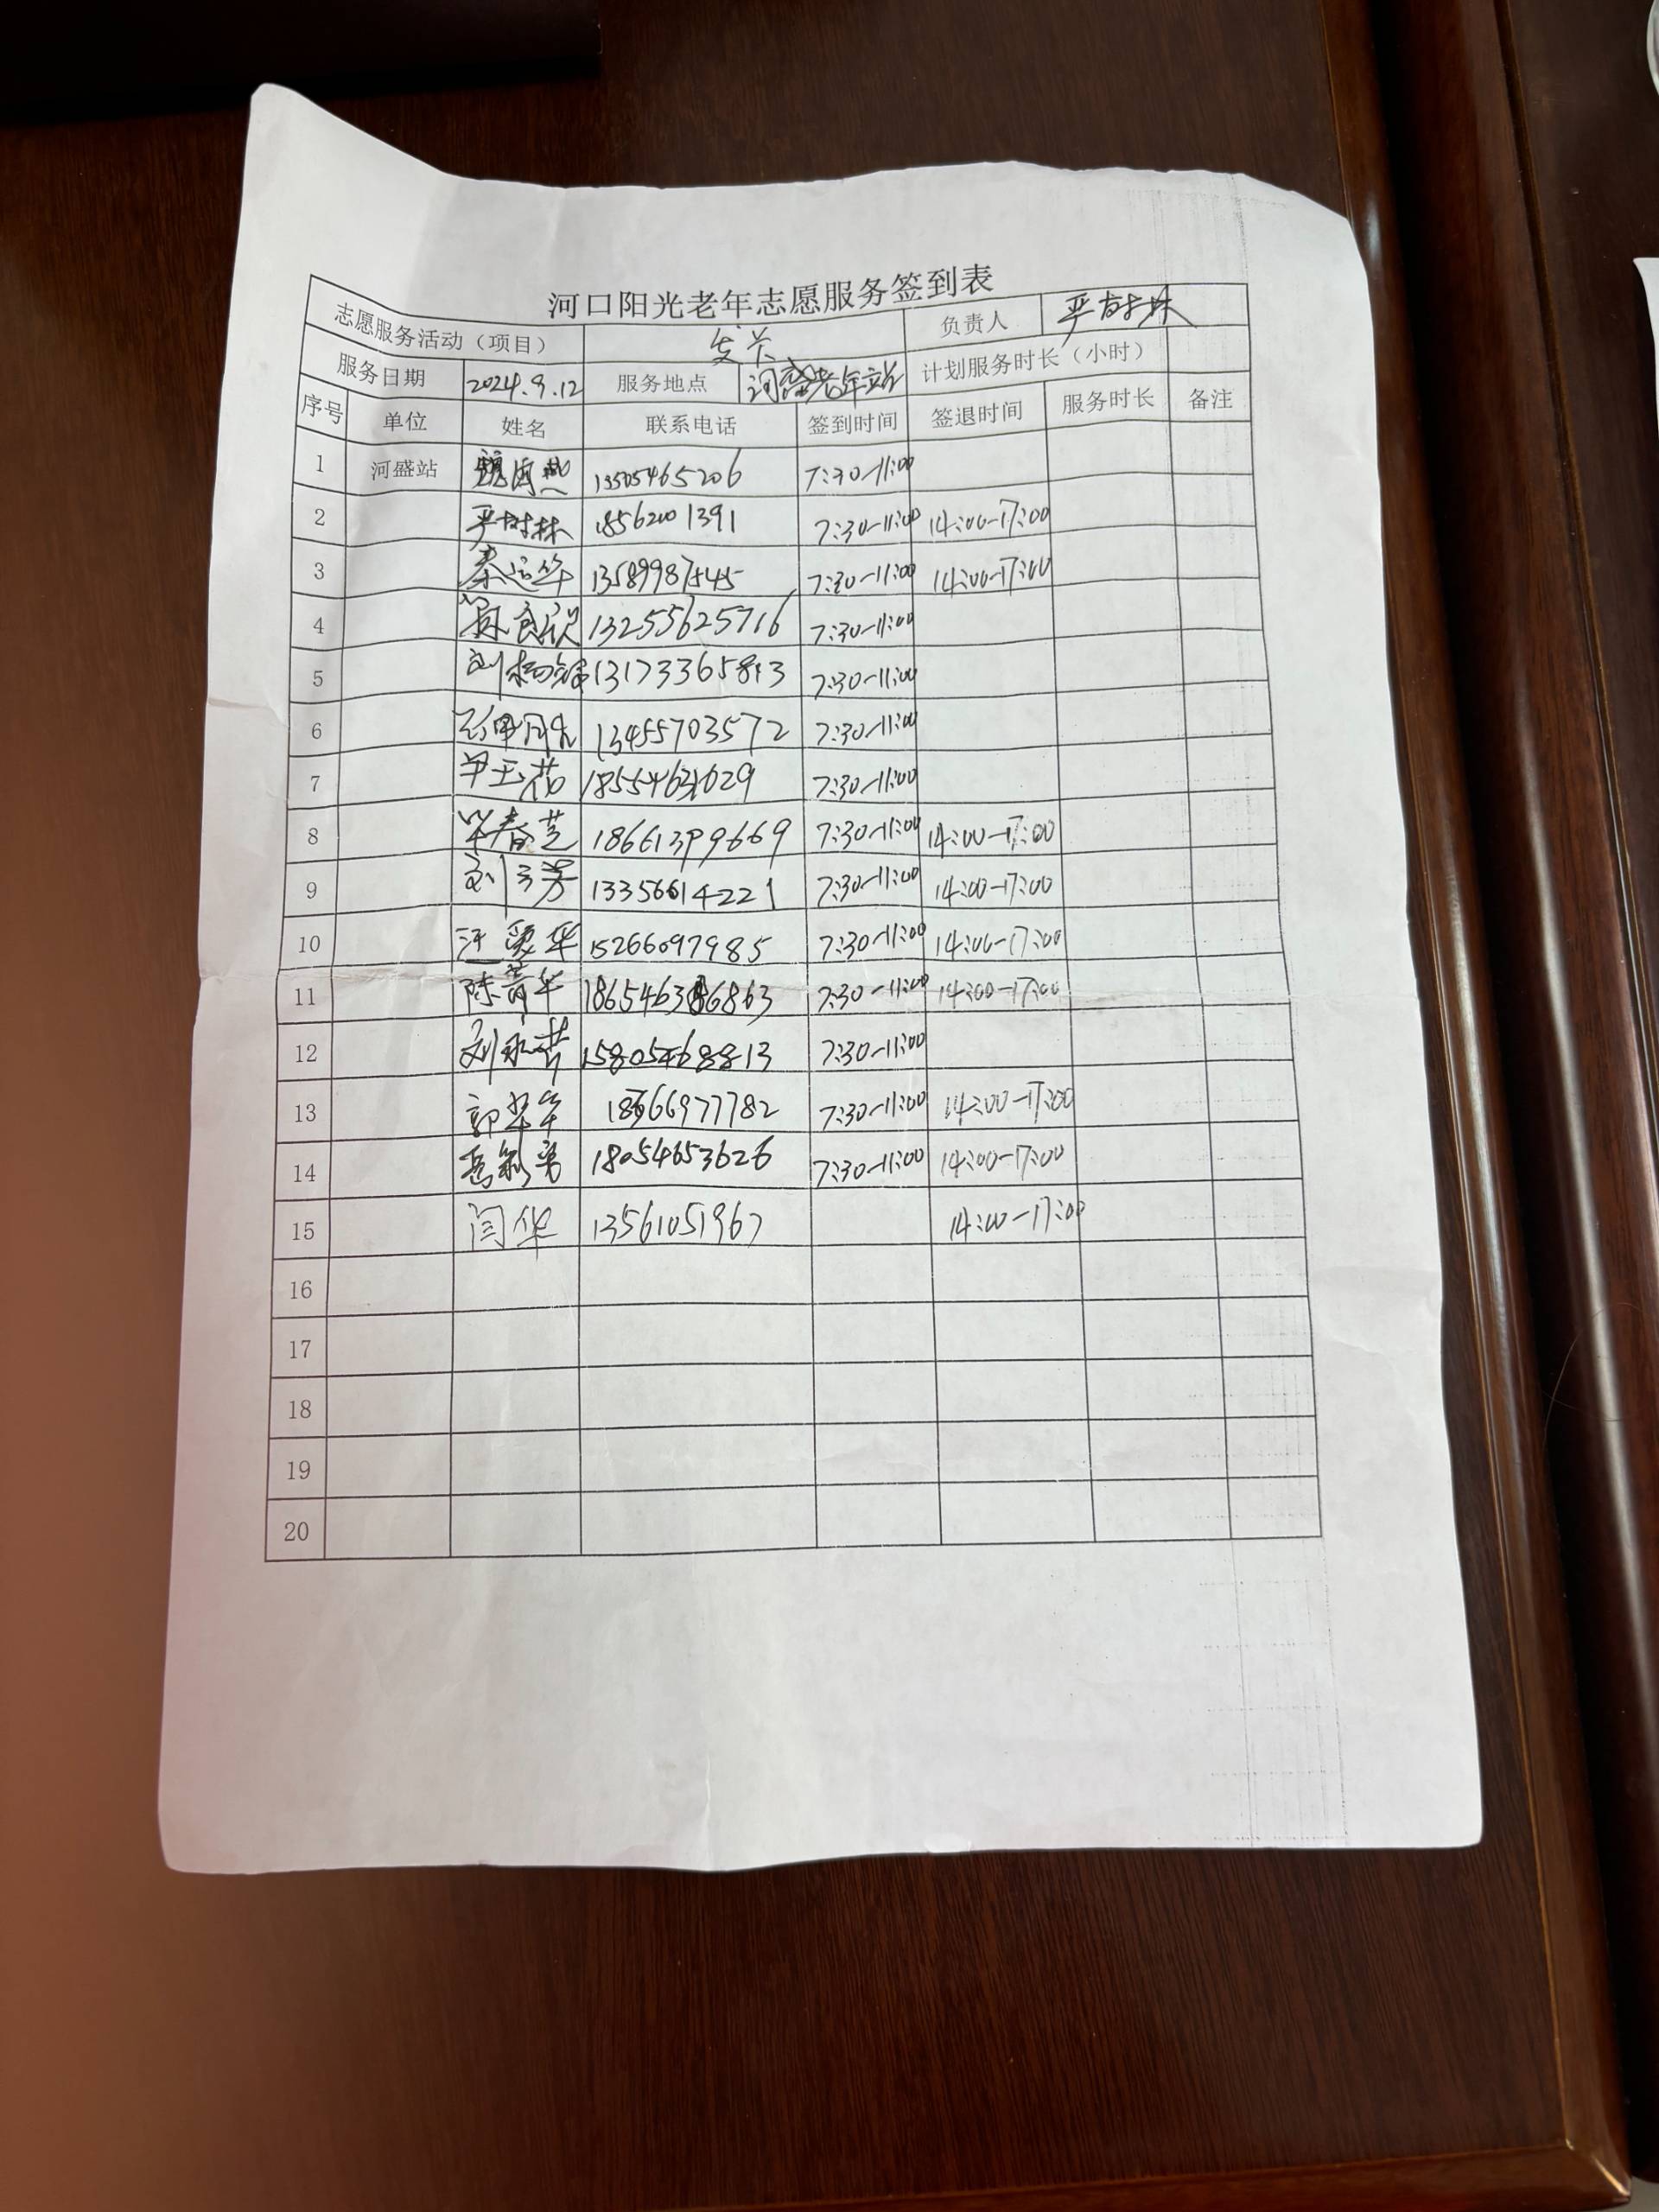 河口阳光老年志愿服务签到表
志愿服务活动（项目） 负责人 严树林
服务日期 2024.9.12 服务地点 河盛老年站 计划服务时长（小时）
序号 单位 姓名 联系电话 签到时间 签退时间 服务时长 备注
1 河盛站 魏海燕 13505465206 7:30-11:00
2 严树林 18562001391 7:30-11:00 14:00-17:00
3 秦运华 13589987545 7:30-11:00 14:00-17:00
4 13255625716 7:30-11:00
5 刘 13173365813 7:30-11:00
6 13455703572 7:30-11:00
7 尹玉花 7:30-11:00
8 春芝 18661399669 7:30-11:00 14:00-17:00
9 刘 芳 13356614221 7:30-11:00 14:00-17:00
10 汪爱华 15266097985 7:30-11:00 14:00-17:00
11 陈 华 7:30-11:00 14:00-17:00
12 刘 15805468813 7:30-11:00
13 郭 华 18566977782 7:30-11:00 14:00-17:00
14 18054653626 7:30-11:00 14:00-17:00
15 闫华 13561051967 14:00-17:00
16
17
18
19
20